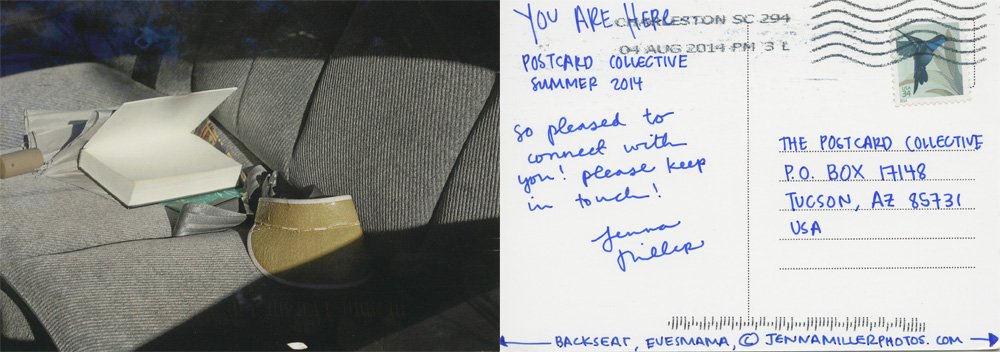 YOU ARE HERE
CHARLESTON SC 294
04 AUG 2014 PM 3 L
POSTCARD COLLECTIVE
SUMMER 2014
So pleased to
connect with
you! please keep
in touch!
Jenna
Miller
USA
34
THE POSTCARD COLLECTIVE
P.O. BOX 17148
TUCSON, AZ 85731
USA
BACKSEAT, EVESMAMA, © JENNAMILLERPHOTOS.COM